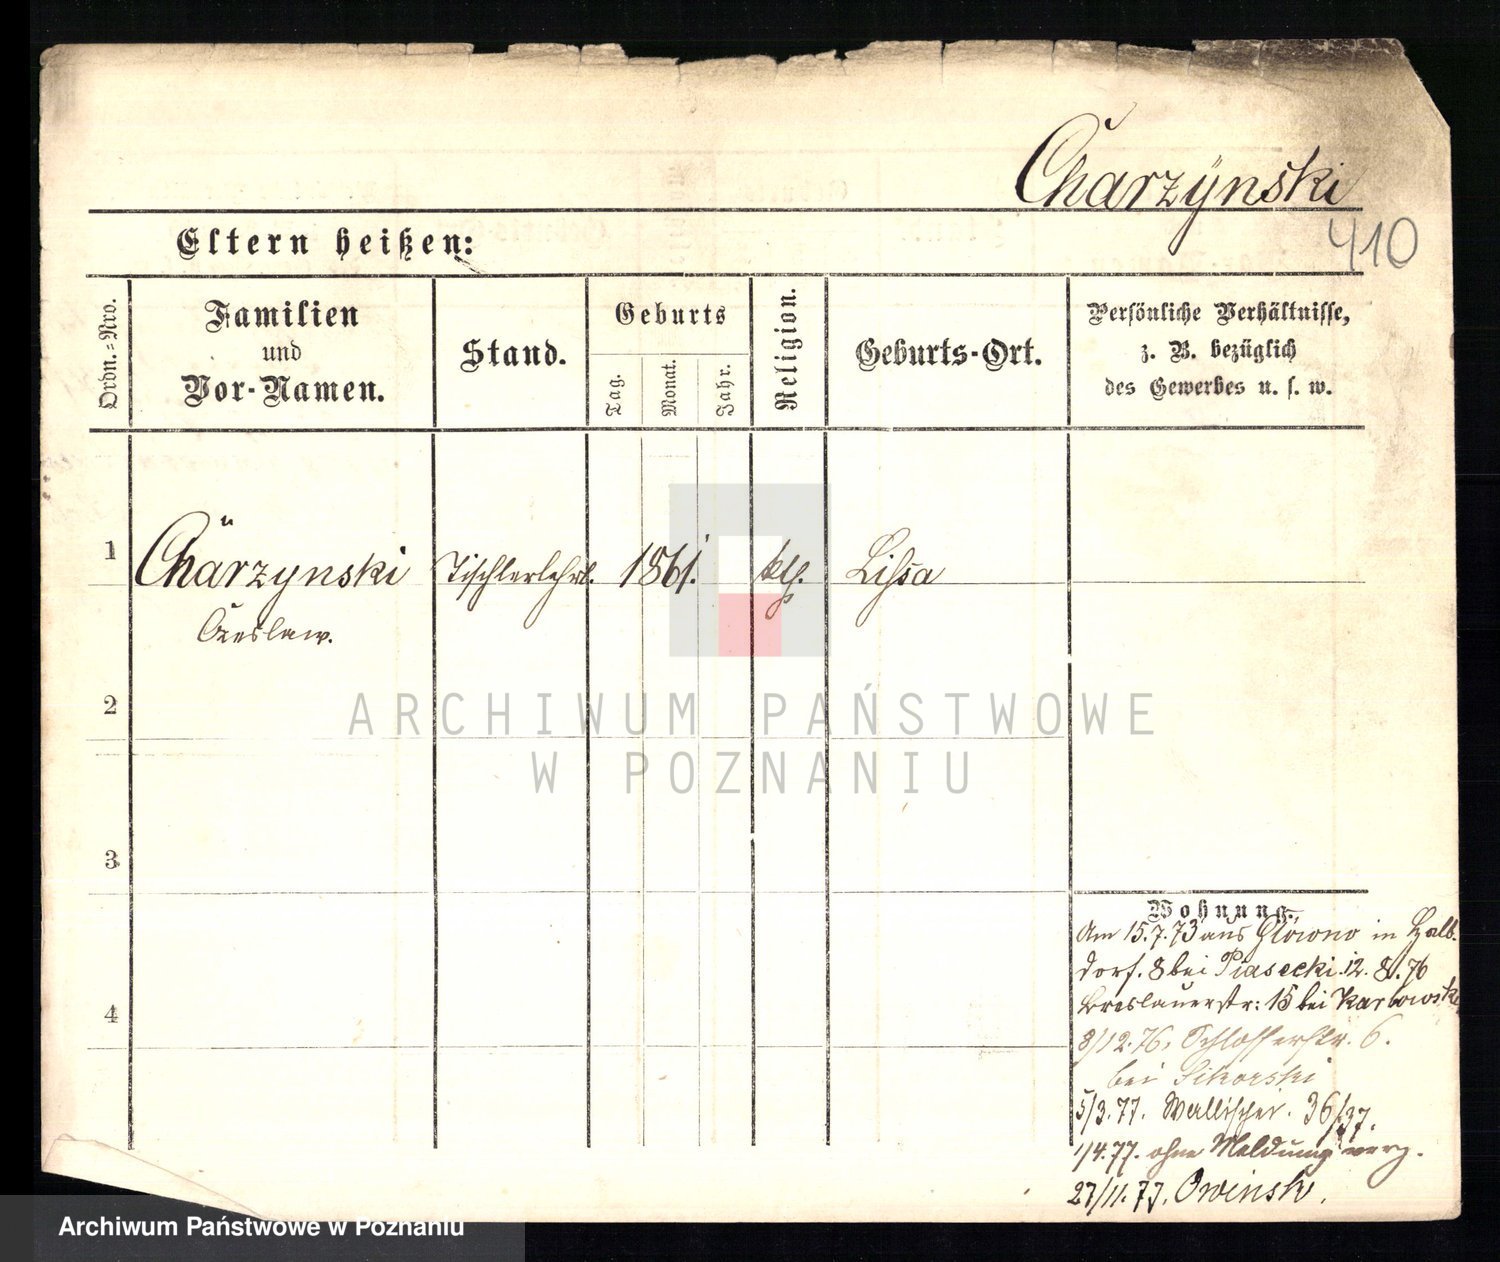 Charzÿnski
410
Eltern heißen:
Ordn.-Nro.
Familien
und
Vor-Namen.
Stand.
Geburts
Tag.
Monat.
Jahr.
Religion.
Geburts-Ort.
Persönliche Verhältnisse,
z. B. bezüglich
des Gewerbes u. s. w.
1
Charzynski
Tischlerlehrl.
1861.
kth.
Lissa
Czeslaw.
2
3
4
ARCHIWUM PAŃSTWOWE
W POZNANIU
Wohnung.
Am 15.7.73 aus Glowno in Halb-
dorf. 8 bei Piasecki. 12. 8. 76
Breslauerstr: 15 bei Karlowski
8/12.76. Schlosserstr. 6.
bei Sikorski
5/3.77. Wallischei. 36/37.
1/4.77. ohne Meldung verz.
27/11.77. Owinsk.
Archiwum Państwowe w Poznaniu